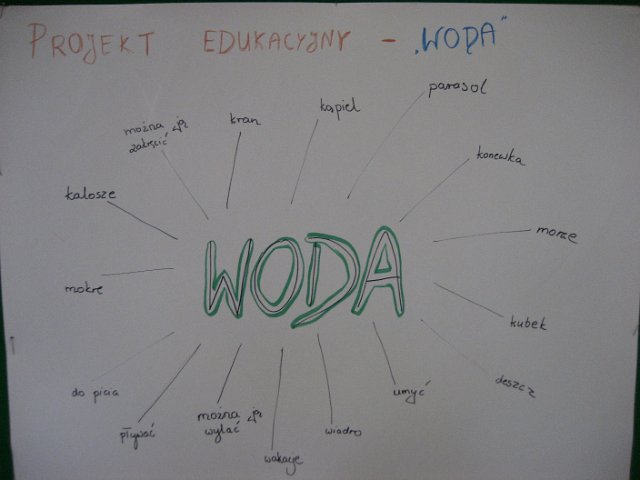 PROJEKT EDUKACYJNY - „WODA"
można ją
zakręcić
kran
kąpiel
parasol
konewka
morze
kubek
deszcz
umyć
wiadro
wakacje
można ją
wylać
pływać
do picia
mokre
kalosze
WODA